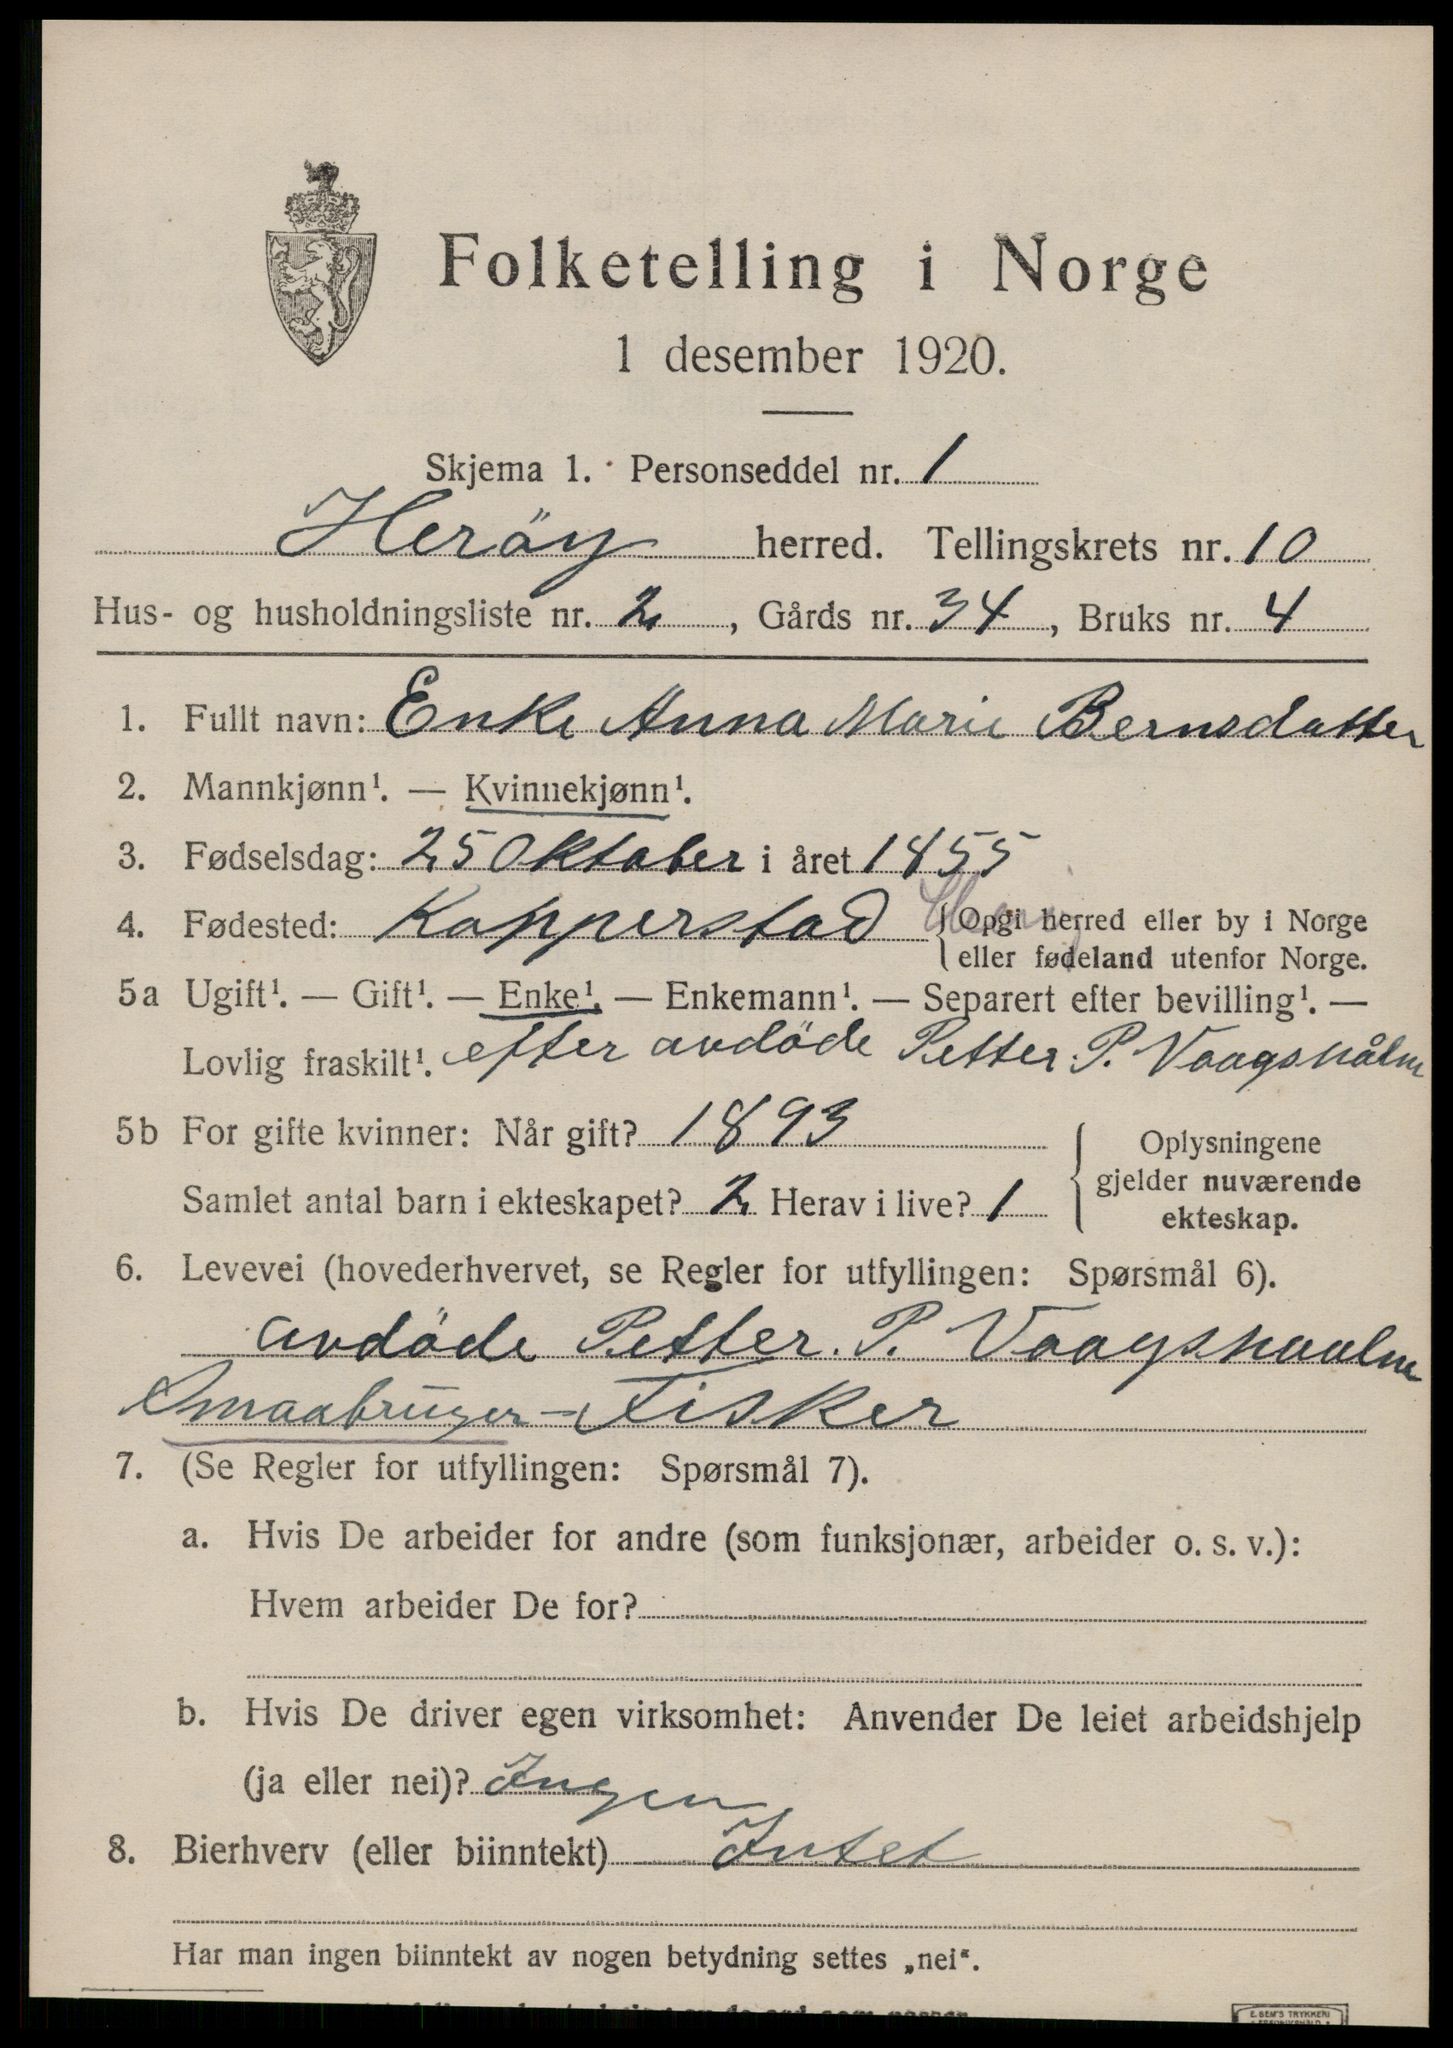 Folketelling i Norge
1 desember 1920.
Skjema 1. Personseddel nr. 1
Heröy herred. Tellingskrets nr. 10
Hus- og husholdningsliste nr. 2, Gårds nr. 34, Bruks nr. 4
1. Fullt navn: Enke Anna Marie Bernsdatter
2. Mannkjønn¹. — Kvinnekjønn¹.
3. Fødselsdag: 25 Oktober i året 1855
4. Fødested: Kopperstad
{Opgi herred eller by i Norge
eller fødeland utenfor Norge.
5a Ugift¹. — Gift¹. — Enke¹. — Enkemann¹. — Separert efter bevilling¹. —
Lovlig fraskilt¹. efter avdöde Petter P. Vaagshålm
5b For gifte kvinner: Når gift? 1893
Samlet antal barn i ekteskapet? 2 Herav i live? 1
{Oplysningene
gjelder nuværende
ekteskap.
6. Levevei (hovederhvervet, se Regler for utfyllingen: Spørsmål 6).
avdöde Petter. P. Vaagshaalm
Smaabruger - Fisker
7. (Se Regler for utfyllingen: Spørsmål 7).
a. Hvis De arbeider for andre (som funksjonær, arbeider o. s. v.):
Hvem arbeider De for?
b. Hvis De driver egen virksomhet: Anvender De leiet arbeidshjelp
(ja eller nei)? Ingen
8. Bierhverv (eller biinntekt) Intet
Har man ingen biinntekt av nogen betydning settes „nei“.
E. SEM'S TRYKKERI